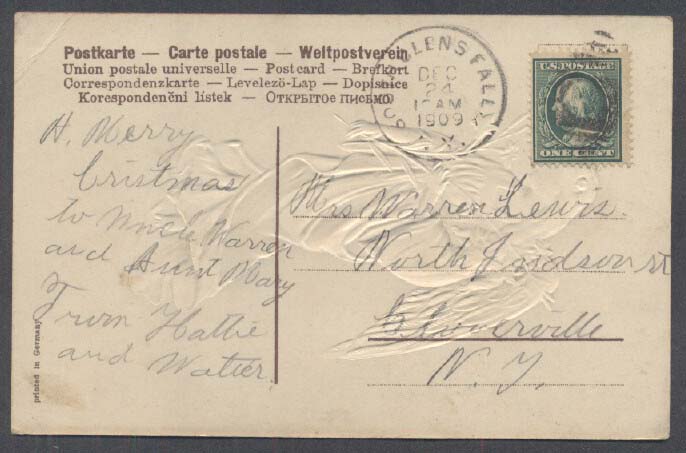 Postkarte — Carte postale — Weltpostverein
Union postale universelle — Postcard — Brefkort
Correspondenzkarte — Levelező-Lap — Dopisnice
Korespondenčni listek — Открытое письмо
GLENS FALLS
DEC
24
10 AM
1909
U.S. POSTAGE
ONE CENT
A. Merry
Cristmas
to Uncle Warren
and Aunt Mary
From Hattie
and Walter.
Mrs Warren Lewis.
North Judson st
Gloverville
N. Y.
printed in Germany